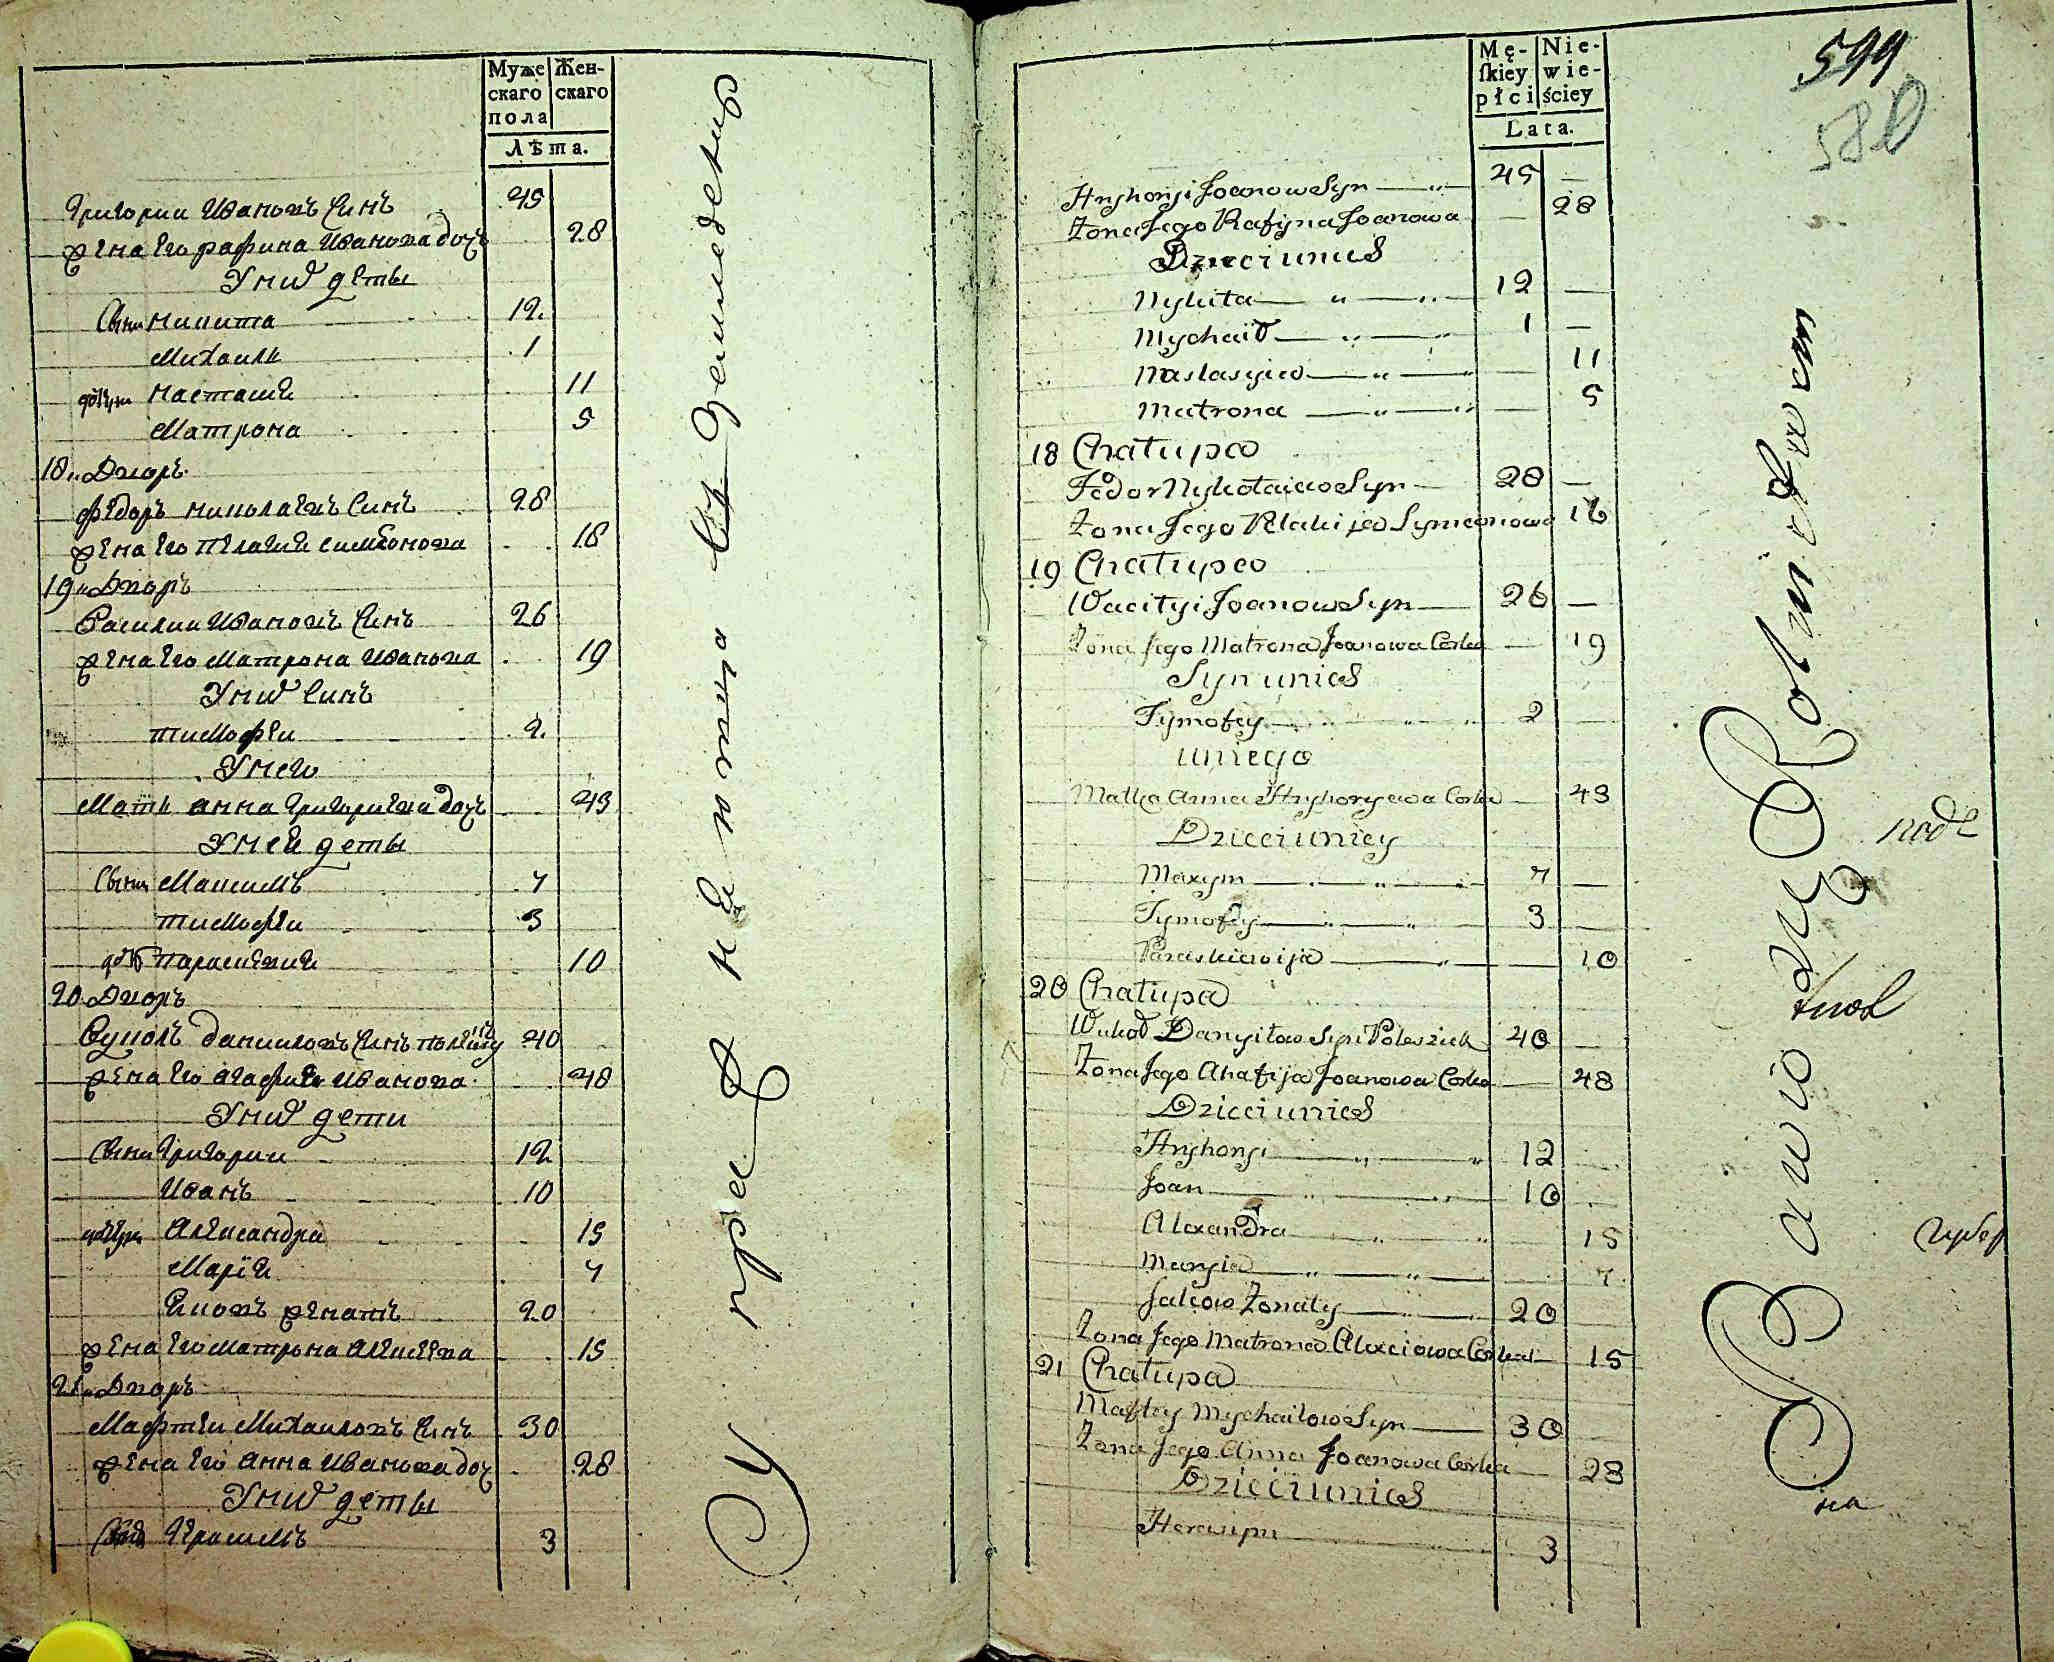 Муже Жен-
скаго скаго
пола
Лѣта.
Григории Иванохъ Синъ 45
жена Его рафина Иванова доч 28
У нид детьı
Сыны Никита 12
Михаилъ 1
дочери настасия 11
Матрона 5
18 Дворъ
Федоръ николаевъ Синъ 28
жена Его Пелагия симеонова 18
19 Дворъ
Василии Ивановъ Синъ 26
жена Его Матрона Иванова 19
У них Синъ
Тимофеи 2
У него
Мать анна Григориева доч 43
У неи деты
Сыны Максимъ 7
тимофеи 3
дочь параскевия 10
20 Дворъ
Вуколъ даниловъ Синъ 40
жена Его агафия Иванова 48
У них дети
Сыны Григории 12
Иванъ 10
дочери Александра 15
Мария 7
женатъ 20
жена Его Матрона Алексеева 15
21 Дворъ
Мафтеи Михаиловъ Синъ 30
жена Его Анна Иванова доч 28
У них деты
Герасимъ 3
Mę- Nie-
ſkiey wie-
płci ściey
Lata.
Hryhoryi Joanow Syn 45
Zona Jego Rafyna Joanowa 28
Dzieci unich
Nykita 12
Mychaił 1
Nastasyia 11
Matrona 5
18 Chatupa
Fedor Nykołaiew Syn 28
Zona Jego Pelahija Symeonowa 16
19 Chatupa
Wacilyi Joanow Syn 26
Zona Jego Matrona Joanowa Corka 19
Syn unich
Tymofey 2
uniego
Matka Anna Hryhoryewa Corka 43
Dzieci uniey
Maxym 7
Tymofey 3
Paraskiewija 10
20 Chatupa
Wukoł Danyiłow Syn Poleszuk 40
Zona Jego Ahafija Joanowa Corka 48
Dzieci unich
Hryhoryi 12
Joan 10
Alexandra 15
Maryia 7
Jakow Zonaty 20
Zona Jego Matrona Alexiowa Corka 15
21 Chatupa
Maftey Mychaiłow Syn 30
Zona Jego Anna Joanowa Corka 28
Dzieci unich
Herasym 3
599
580
на